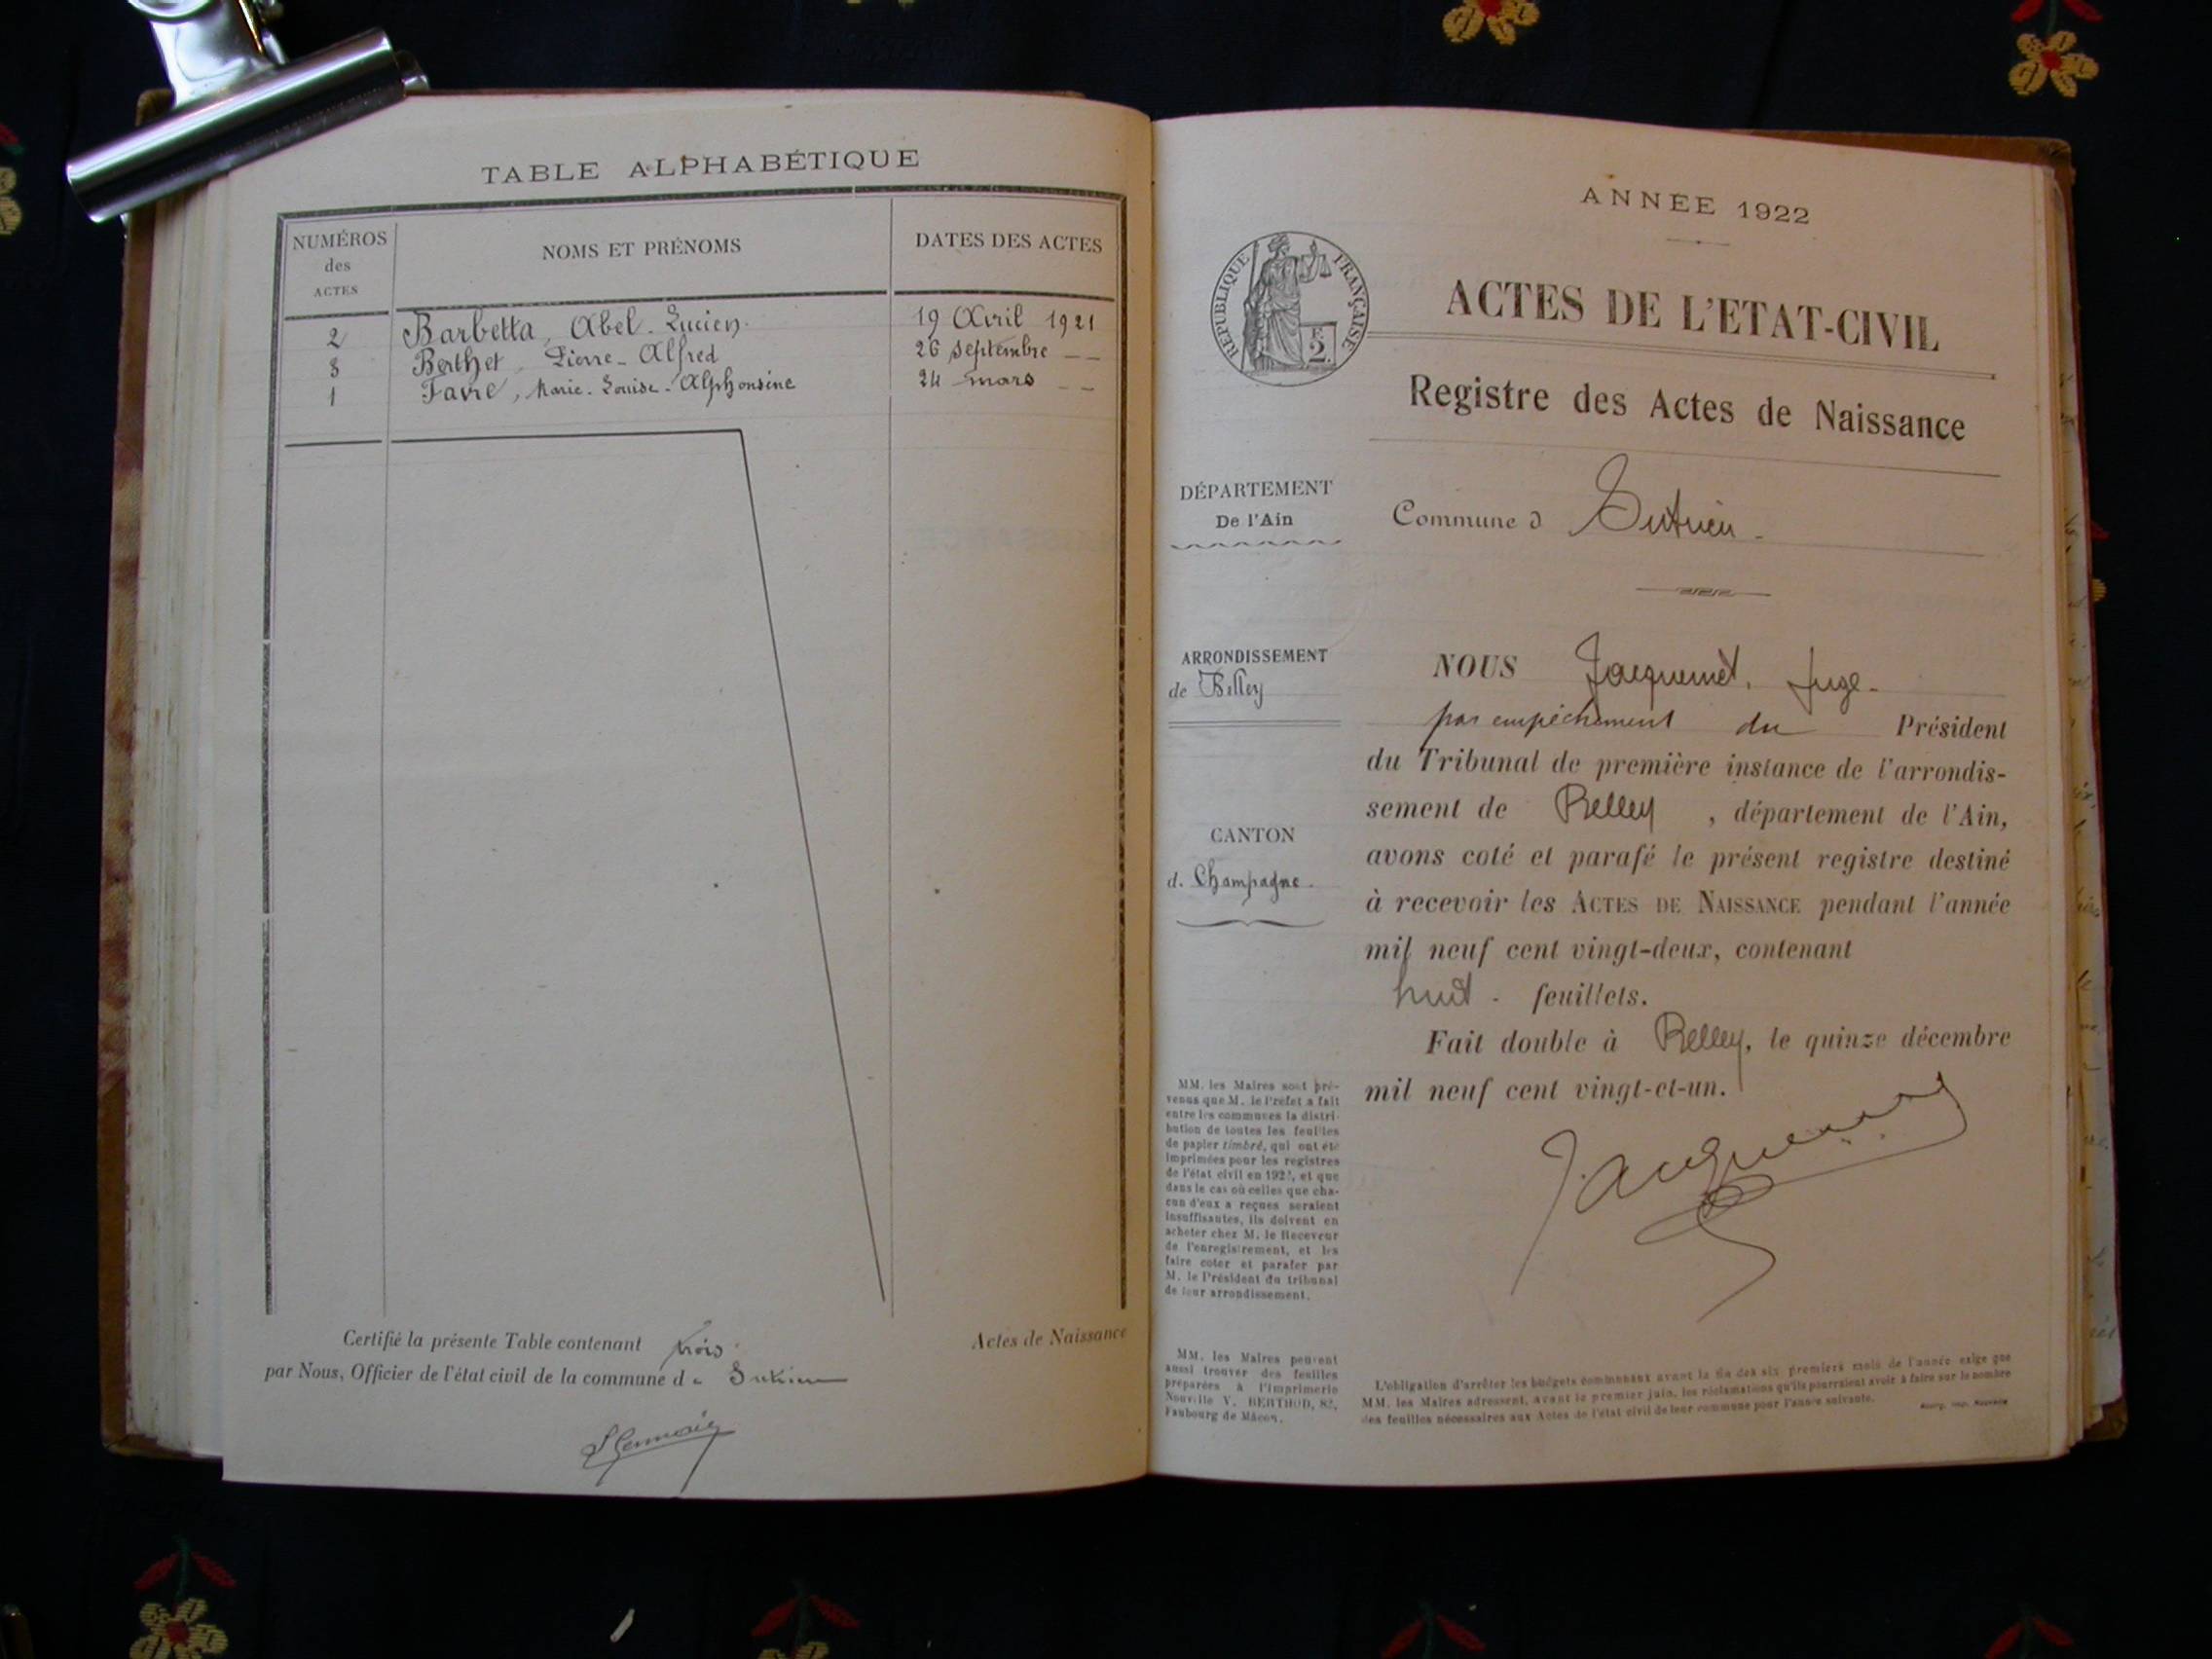 TABLE ALPHABÉTIQUE
NUMÉROS des ACTES NOMS ET PRÉNOMS DATES DES ACTES
2 Barbetta, Abel-Lucien. 19 Avril 1921
3 Berthet, Pierre-Alfred 26 septembre — —
1 Favre, Marie-Louise-Alphonsine 24 mars — —
Certifié la présente Table contenant trois Actes de Naissance
par Nous, Officier de l'état civil de la commune de Sutrieu
ANNÉE 1922
RÉPUBLIQUE FRANÇAISE
2
ACTES DE L'ETAT-CIVIL
Registre des Actes de Naissance
DÉPARTEMENT
De l'Ain
Commune d Sutrieu.
ARRONDISSEMENT
de Belley
CANTON
d. Champagne.
NOUS Jacquemet, Juge.
par empêchement du Président
du Tribunal de première instance de l'arrondis-
sement de Belley, département de l'Ain,
avons coté et parafé le présent registre destiné
à recevoir les ACTES DE NAISSANCE pendant l'année
mil neuf cent vingt-deux, contenant
huit - feuillets.
Fait double à Belley, le quinze décembre
mil neuf cent vingt-et-un.
MM. les Maires sont pré-
venus que M. le Préfet a fait
entre les communes la distri-
bution de toutes les feuilles
de papier timbré, qui ont été
imprimées pour les registres
de l'état civil en 1922, et que
dans le cas où celles que cha-
cun d'eux a reçues seraient
insuffisantes, ils doivent en
acheter chez M. le Receveur
de l'enregistrement, et les
faire coter et parafer par
M. le Président du tribunal
de leur arrondissement.
MM. les Maires peuvent
aussi trouver des feuilles
préparées à l'imprimerie
Nouvelle V. BERTHOD, 82,
Faubourg de Mâcon.
L'obligation d'arrêter les budgets communaux avant la fin des six premiers mois de l'année exige que
MM. les Maires adressent, avant le premier juin, les réclamations qu'ils pourraient avoir à faire sur le nombre
des feuilles nécessaires aux Actes de l'état civil de leur commune pour l'année suivante.